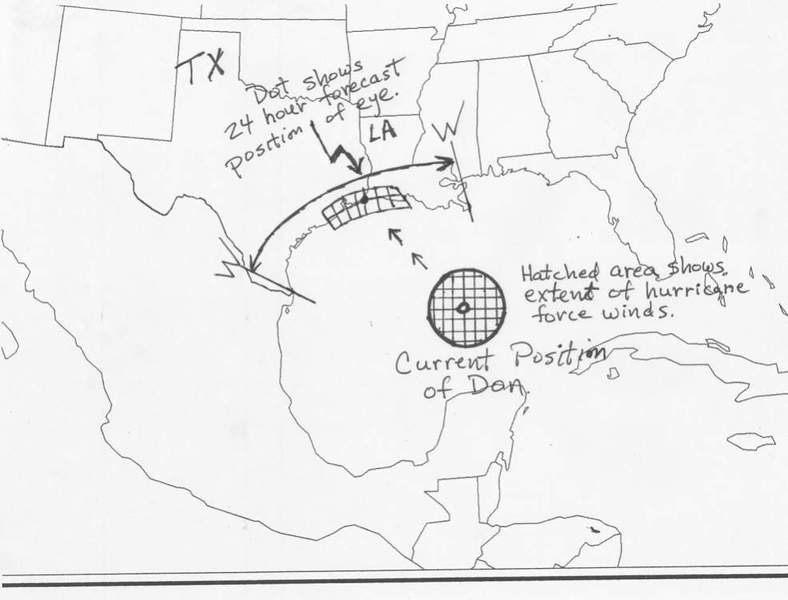 TX
Dot shows
24 hour forecast
position of eye.
LA
W
W
Hatched area shows
extent of hurricane
force winds.
Current Position
of Don.